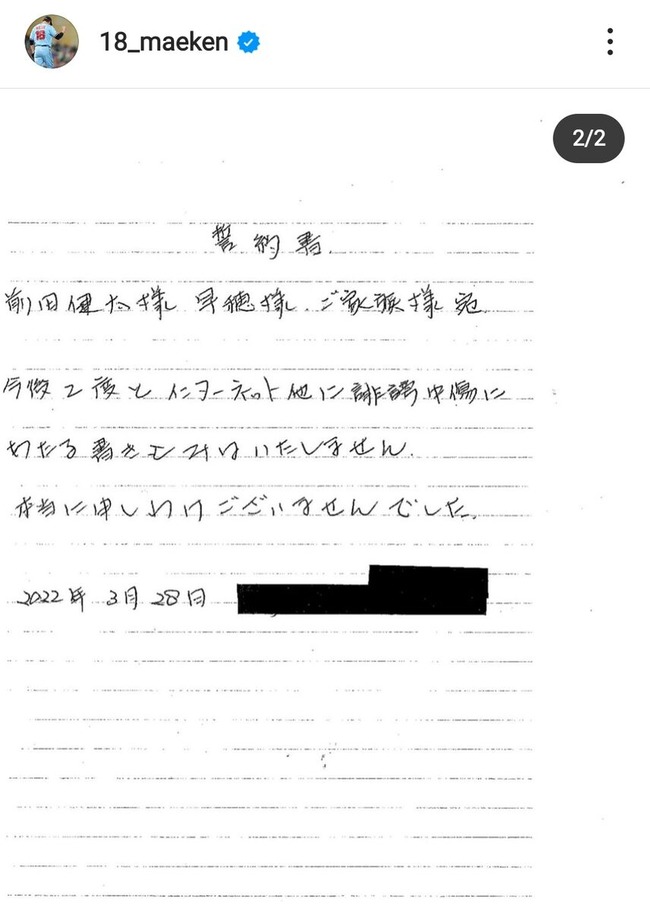 18_maeken
2/2
誓約書
前田健太様 早穂様. ご家族様 宛
今後2度と インターネット他に誹謗中傷に
わたる書き込みはいたしません.
本当に申しわけございませんでした。
2022年 3月 28日